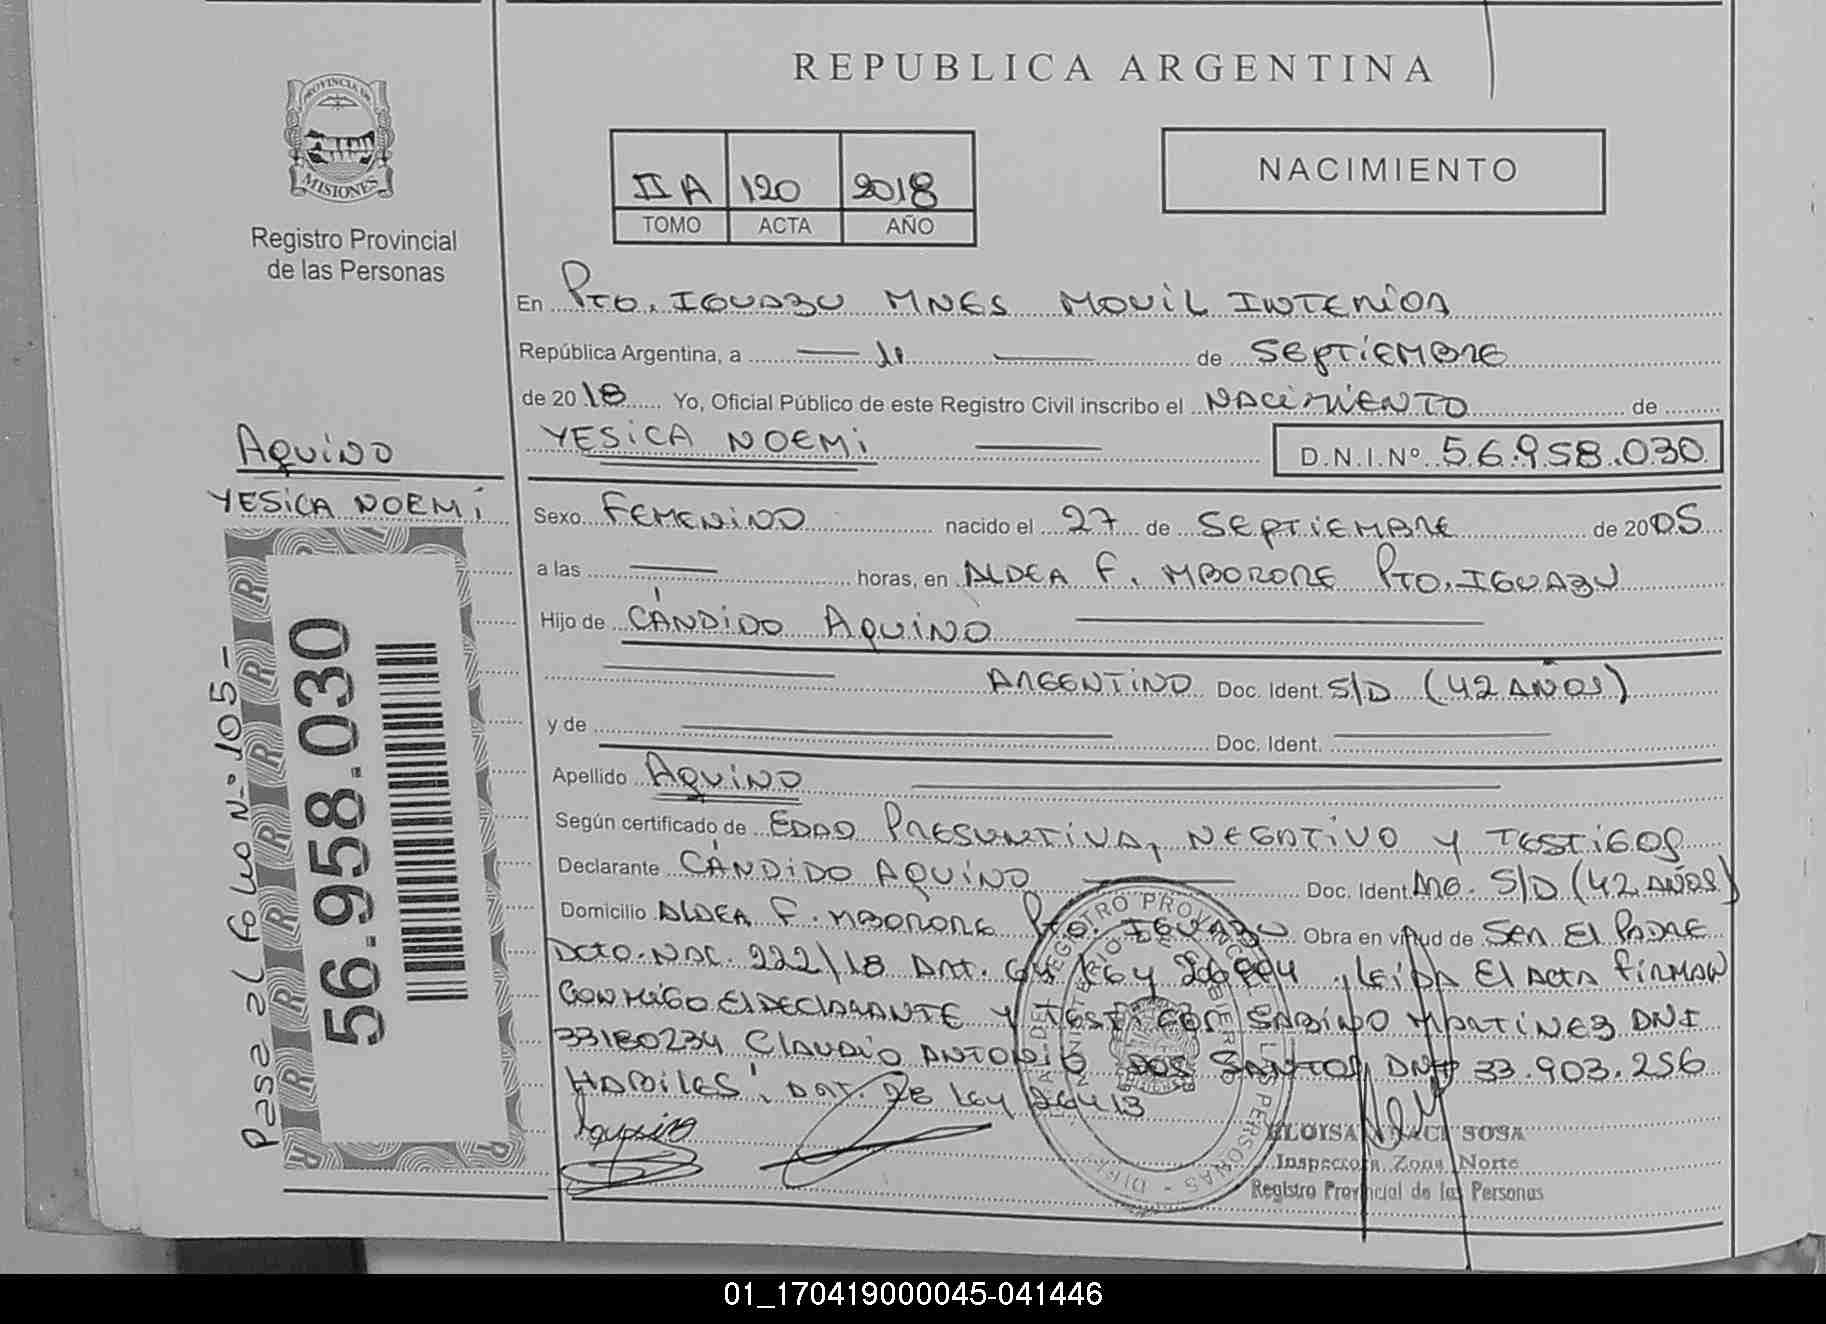 REPUBLICA ARGENTINA
PROVINCIA DE
MISIONES
Registro Provincial
de las Personas
II A 120 2018
TOMO ACTA AÑO
NACIMIENTO
En Pto. IGUAZU MNES MOVIL INTERIOR
República Argentina, a — de — de SEPTIEMBRE
de 2018 Yo, Oficial Público de este Registro Civil inscribo el NACIMIENTO de
YESICA NOEMI — D.N.I.Nº 56.958.030
AQUINO
YESICA NOEMÍ
Sexo FEMENINO nacido el 27 de SEPTIEMBRE de 2005
a las — horas, en ALDEA F. MBORORE PTO. IGUAZU
Hijo de CÁNDIDO AQUINO —
— ARGENTINO Doc. Ident. S/D (42 AÑOS)
y de — Doc. Ident. —
Apellido AQUINO —
Según certificado de EDAD PRESUNTIVA, NEGATIVO Y TESTIGOS
Declarante CÁNDIDO AQUINO — Doc. Ident. ARG. S/D (42 AÑOS)
Domicilio ALDEA F. MBORORE PTO. IGUAZU Obra en virtud de SER El PADRE
DCTO. NAC. 222/18 ART. LEIDA El ACTA FIRMAN
CONMIGO El DECLARANTE Y TESTIGOS SABINO MARTINEZ DNI
33180234 CLAUDIO ANTONIO DOS SANTOS DNI 33.903.256
HABILES, DAT. DE LEY 26413
Aquino
ELOISA SOSA
Inspectora Zona Norte
Registro Provincial de las Personas
56.958.030
Pasa al folio N° 105-
01_170419000045-041446